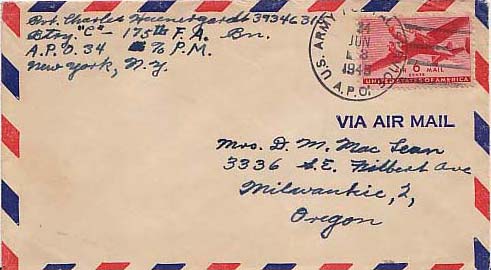 Pvt. Charles
Btry "C" - 175th F. A. Bn.
A.P.O. 34 % P.M.
New York, N.Y.
U.S. ARMY
24
JUN
1945
A.P.O.
6
AIR MAIL
CENTS
UNITED STATES OF AMERICA
VIA AIR MAIL
Mrs. D. M. Mac Lean
3336 S.E. Filbert Ave
Milwaukie, 2,
Oregon